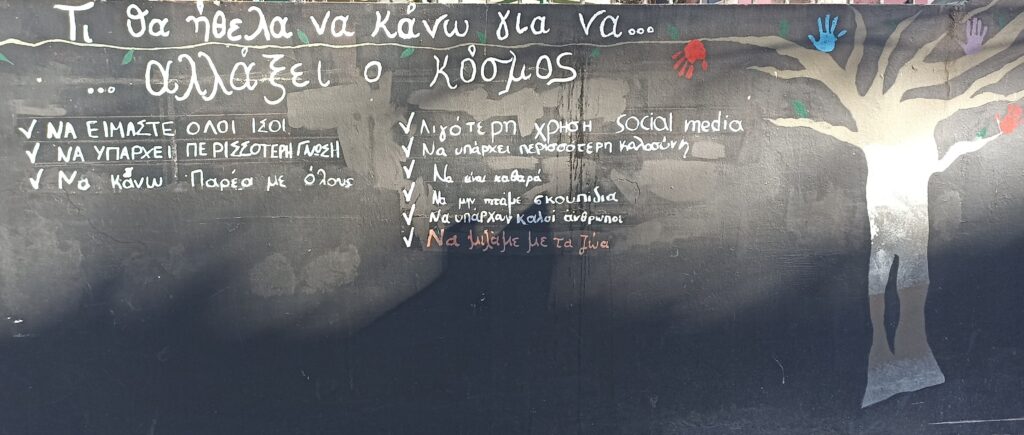 Τι θα ήθελα να κάνω για να...
... αλλάξει ο κόσμος
✓ ΝΑ ΕΙΜΑΣΤΕ ΟΛΟΙ ΙΣΟΙ
✓ ΝΑ ΥΠΑΡΧΕΙ ΠΕΡΙΣΣΟΤΕΡΗ ΓΝΩΣΗ
✓ Να κάνω Παρέα με όλους
✓ Λιγότερη χρήση social media
✓ Να υπάρχει περισσότερη καλοσύνη
✓ Να είναι καθαρά
✓ Να μην πετάμε σκουπίδια
✓ Να υπάρχουν καλοί άνθρωποι
✓ Να μιλάμε με τα ζώα